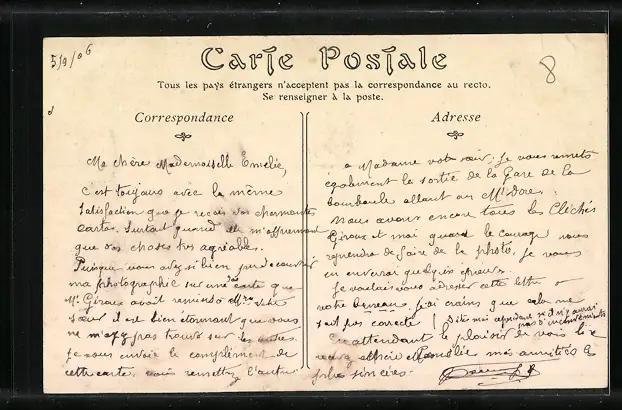 5/9/06
Carte Postale
8
Tous les pays étrangers n'acceptent pas la correspondance au recto.
Se renseigner à la poste.
Correspondance
Adresse
Ma chère Mademoiselle Emélie,
C'est toujours avec la même
satisfaction que je reçois vos charmantes
cartes. Surtout quand elle m'
que des choses très agréables.
Puisque vous avez si bien pu découvrir
ma photographie sur une carte que
Mr. Giraux avait remis à votre
sœur il est bien étonnant que vous
ne m'ayez pas trouvé sur les autres
Je vous envoie le complément de
cette carte, vous remettrez l'autre
à Madame votre sœur; je vous remets
également la sortie de la Gare de la
Bourboule allant au Mt Dore.
Nous avons encore tous les Clichés
Giraux et moi quand le courage nous
reprendra de faire de la photo, je vous
en enverrai quelques épreuves.
Je voulais vous adresser cette lettre à
votre bureau, j'ai crains que cela ne
soit pas correcte
Dites moi cependant si il n'y aurait
pas d'inconvénients
En attendant le plaisir de vous lire
recevez chère Emélie mes amitiés les
plus sincères.